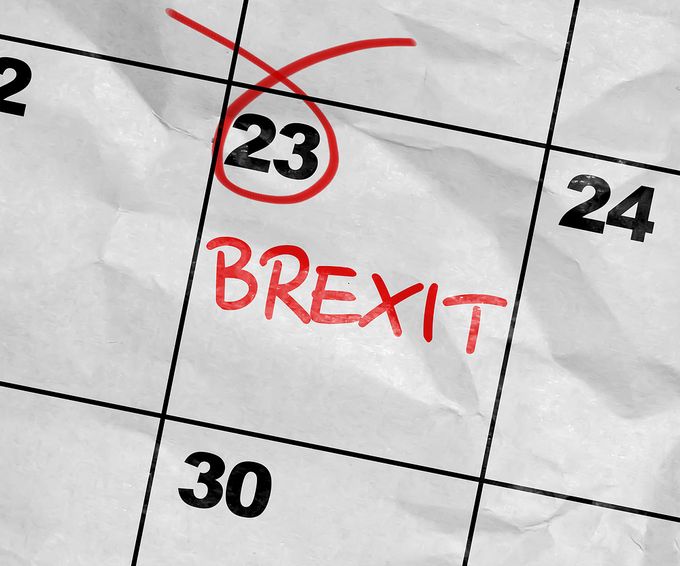 2 23 24
BREXIT
30